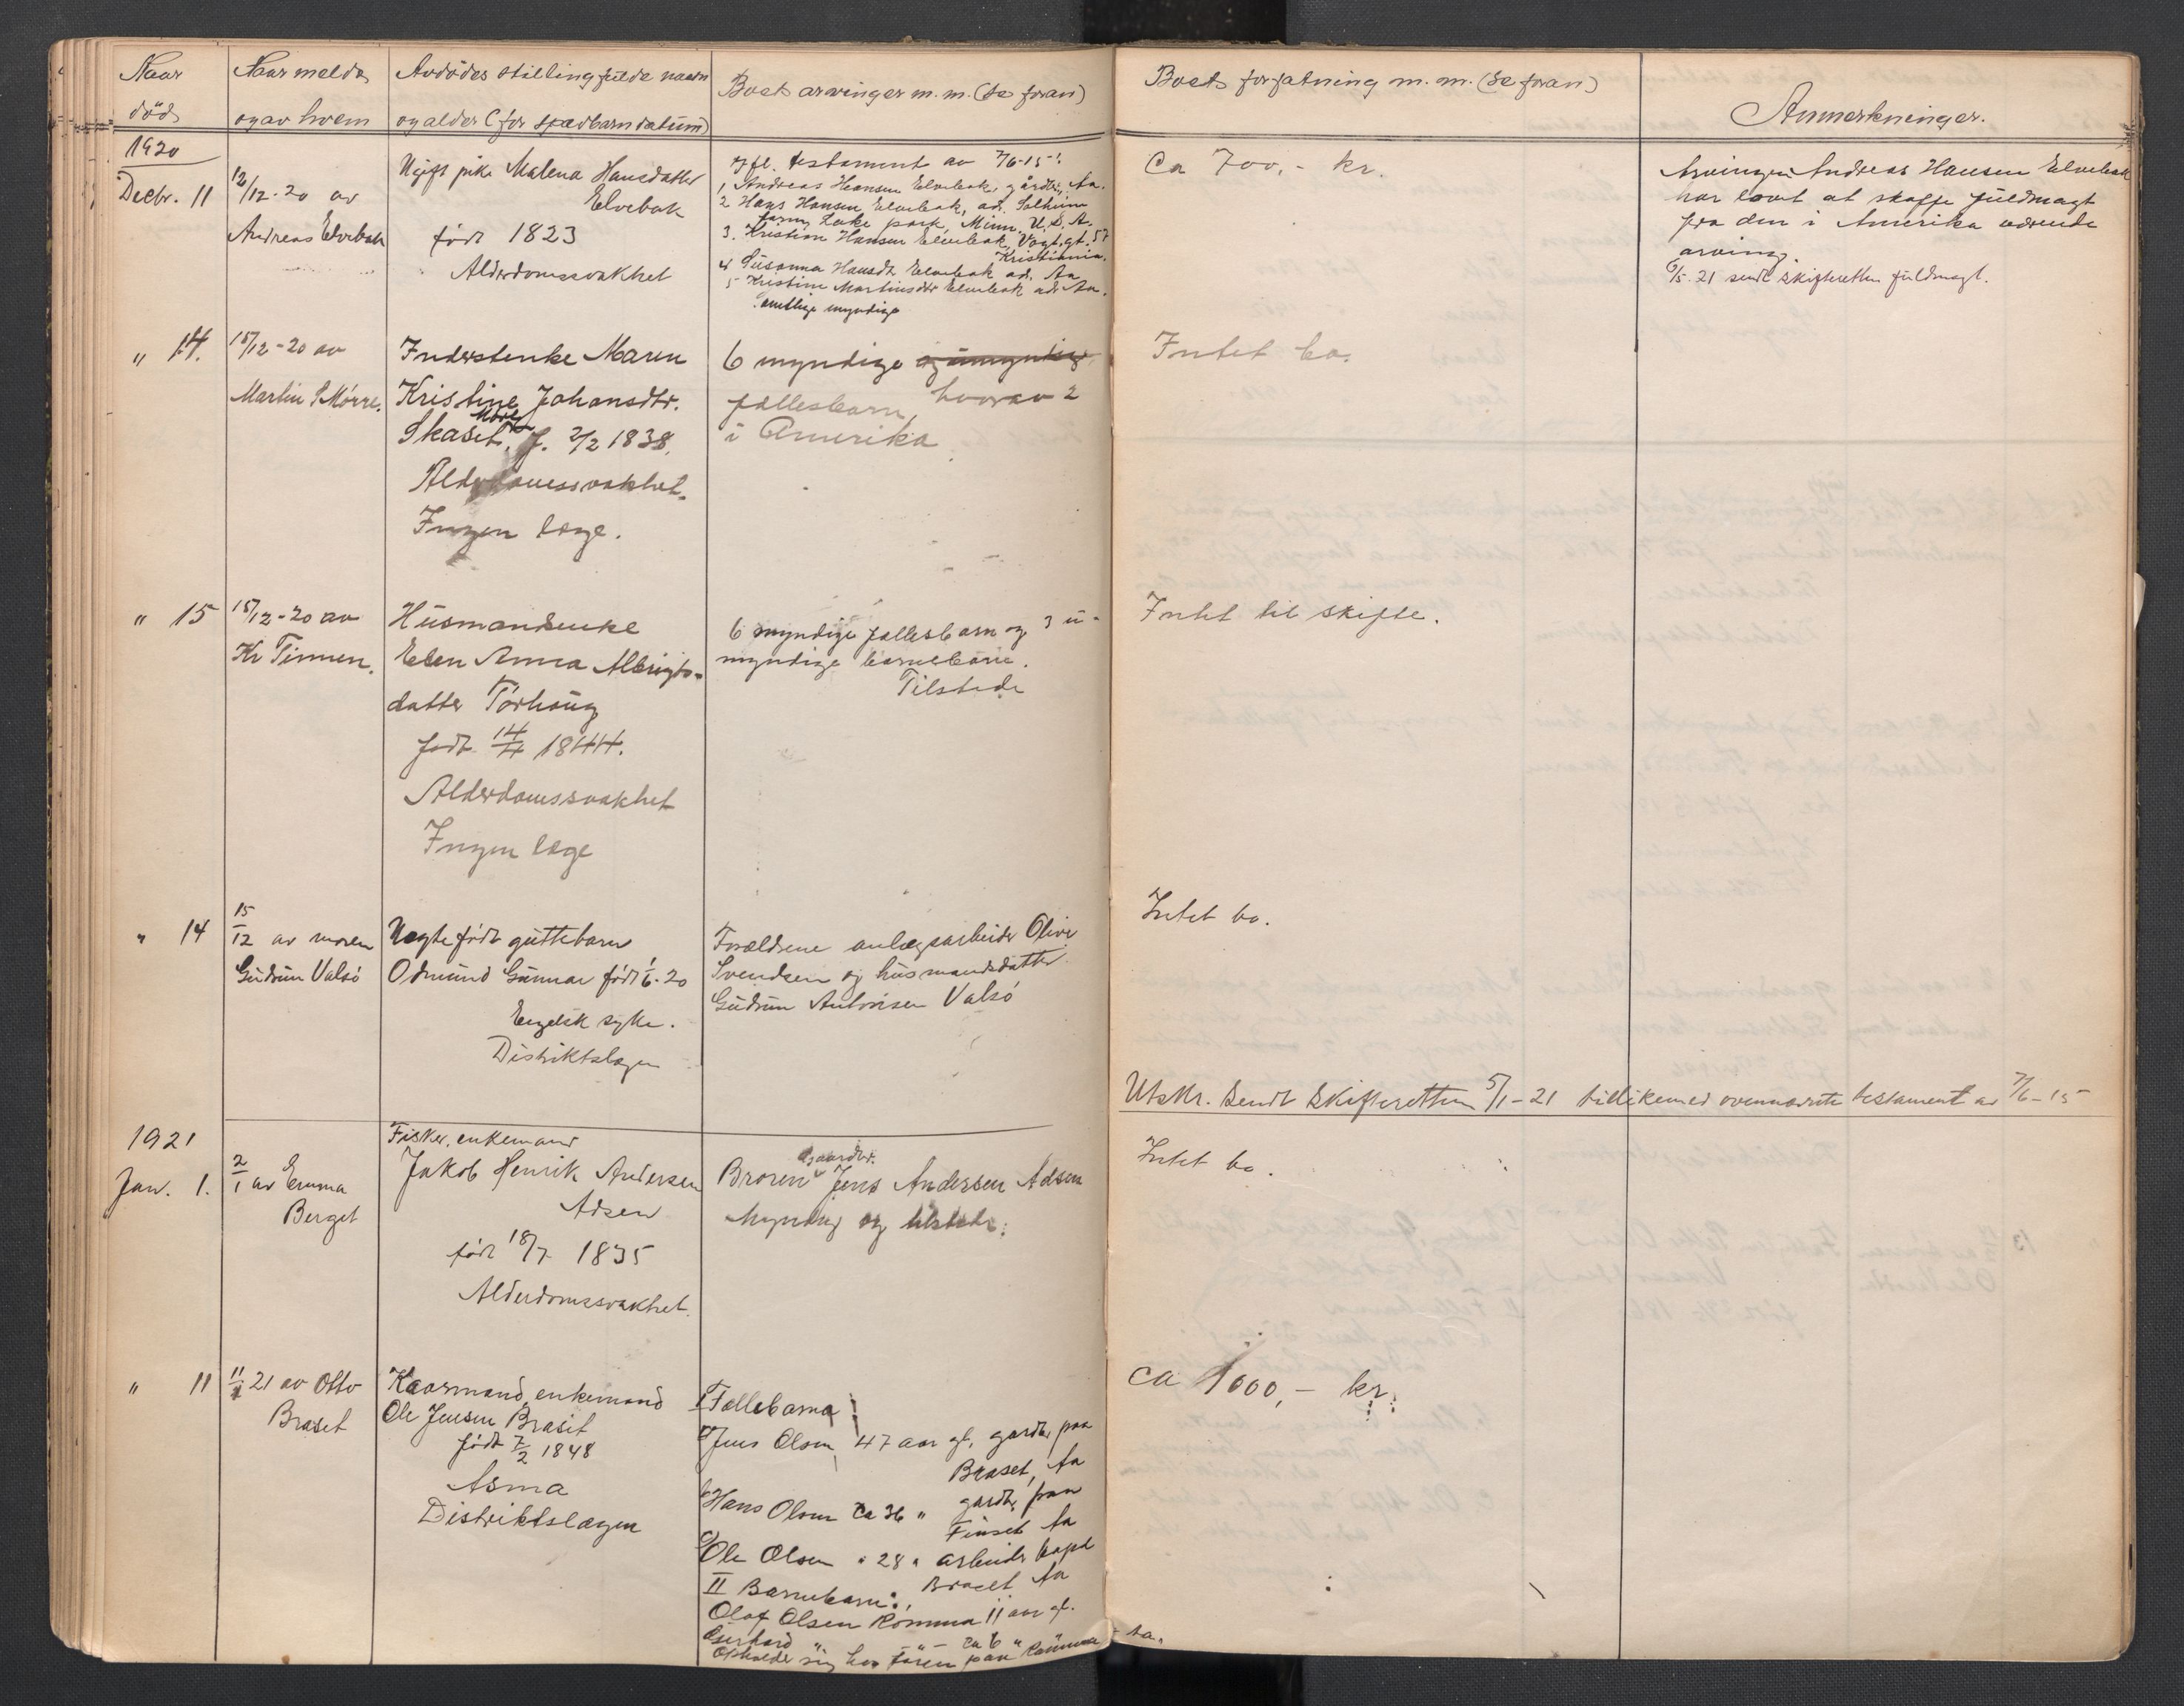 Naar
död
Naar meldt
og av hvem
Avdödes stilling fulde navn
og alder (for spædbarn datum)
Boets arvinger m. m. (se foran)
Boets forfatning m. m. (se foran)
Anmerkninger.
1920
Decbr. 11
12/12-20 av
Andreas Elvebak
Ugift pike Malena Hansdatter
Elvebak
født 1823
Alderdomssvakhet
Ifl. testament av 7/6-15:
1, Andreas Hansen Elvebak, gårdbr, Aa.
2 Hans Hansen Elvebak, ad. Solheim
farm, Lake park, Minn. U.S.A.
3. Kristian Hansen Elvebak, Vogt.gt. 57
Kristiania.
4 Susanna Hansdtr Elvebak ad. Aa
5 Kristine Martinsdtr Elvebak adr Aa.
samtlige myndige
Ca 700,- kr.
Arvingen Andreas Hansen Elvebak
har lovt at skaffe fuldmagt
fra den i Amerika værende
arving.
/5. 21 sendt skifteretten fuldmagt.
" 14.
15/12-20 av
Martin Mørre.
Inderstenke Maren
Kristine Johansdtr.
Mørre
Skaset. f. 2/2 1838.
Alderdomssvakhet.
Ingen læge.
6 myndige og umyndige
fællesbarn, hvorav 2
i Amerika
Intet bo.
" 15
15/12-20 av
Kr Tinnen.
Husmandsenke
Elen Anna Albrigts-
datter Torhaug
født 14/4 1844.
Alderdomssvakhet
Ingen læge
6 myndige fællesbarn og 3 u-
myndige barnebarn.
Tilstede
Intet til skifte.
" 14
15/12 av moren
Gudrun Valsö
Uegte født guttebarn
Odmund Gunnar født 1/6-20
Engelsk syke.
Distriktslægen
Forældrene anlægsarbeider Oliver
Svendsen og husmandsdatter
Gudrun Antonsen Valsö
Intet bo.
Utskr. sendt skifteretten 5/1-21 tillikemed ovennævnte testament av 7/6-15
1921
Jan. 1.
2/1 av Emma
Berget
Fisker, enkemand
Jakob Henrik Andersen
Adsen
født 18/7 1835
Alderdomssvakhet.
gaardbr.
Broren Jens Andersen Adsen
Myndig og tilstede.
Intet bo.
" 11
11/1 21 av Otto
Braset
Kaarmand, enkemand
Ole Jensen Braset
født 7/2 1848
Asma
Distriktslægen
I Fællebarna
a) Jens Olsen, 47 aar gl, gardbr, paa
Braset, Aa
b) Hans Olsen ca 36 " gardbr, paa
Finset Aa
c) Ole Olsen " 28 " arbeider bopl
Braset Aa
II Barnebarn:
Olaf Olsen Romma 11 aar gl.
Gerhard " " ca 6 "
Opholder sig hos faren paa Romma
- Aa.
ca 1000,- kr.